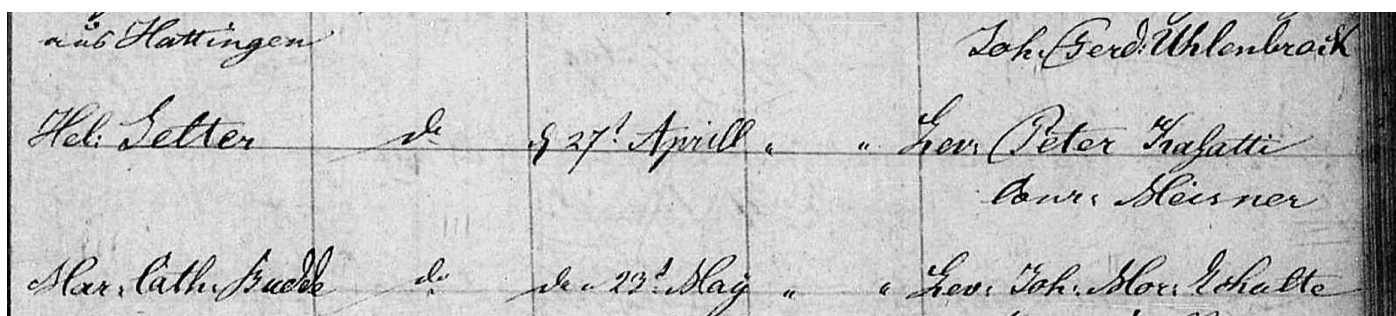 aus Hattingen Joh. Gerd. Uhlenbrock
Hel. Setter do d 27t Aprill " " Zev. Peter Kafatti
Conr. Meisner
Mar. Cath. Budde do den 23t May " " Zev. Joh. Mor. Schulte